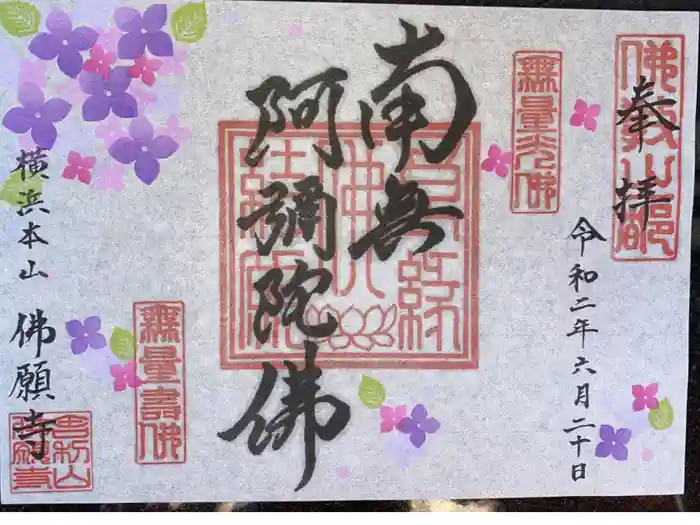 奉拝
令和二年六月二十日
無量光佛
南無
阿彌陀佛
無量壽佛
横浜本山 佛願寺